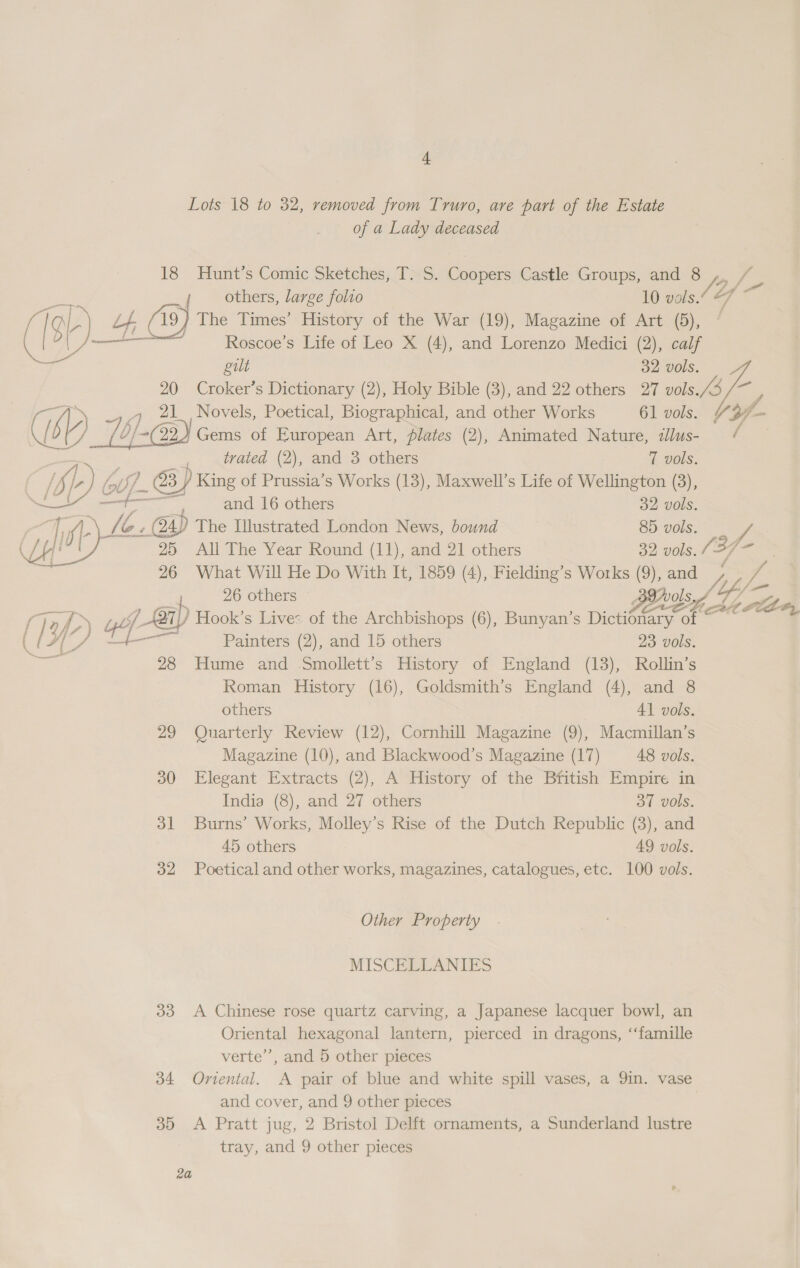 4
Lots 18 to 32, removed from Truro, are part of the Estate
of a Lady deceased
18 Hunt's Comic Sketches, T. S. Coopers Castle Groups, and 8
others, large folio 10 vols.
19 The Times' History of the War (19), Magazine of Art (5),
Roscoe's Life of Leo X (4), and Lorenzo Medici (2), calf
gilt 32 vols.
20 Croker's Dictionary (2), Holy Bible (3), and 22 others 27 vols.
21 Novels, Poetical, Biographical, and other Works 61 vols.
22 Gems of European Art, plates (2), Animated Nature, illus-
trated (2), and 3 others 7 vols.
23 King of Prussia's Works (13), Maxwell's Life of Wellington (3),
and 16 others 32 vols.
24 The Illustrated London News, bound 85 vols.
25 All The Year Round (11), and 21 others 32 vols.
26 What Will He Do With It, 1859 (4), Fielding's Works (9), and
26 others 39 vols.
27 Hook's Lives of the Archbishops (6), Bunyan's Dictionary of
Painters (2), and 15 others 23 vols.
28 Hume and Smollett's History of England (13), Rollin's
Roman History (16), Goldsmith's England (4), and 8
others 41 vols.
29 Quarterly Review (12), Cornhill Magazine (9), Macmillan's
Magazine (10), and Blackwood's Magazine (17) 48 vols.
30 Elegant Extracts (2), A History of the British Empire in
India (8), and 27 others 37 vols.
31 Burns' Works, Molley's Rise of the Dutch Republic (3), and
45 others 49 vols.
32 Poetical and other works, magazines, catalogues, etc. 100 vols.
Other Property
MISCELLANIES
33 A Chinese rose quartz carving, a Japanese lacquer bowl, an
Oriental hexagonal lantern, pierced in dragons, “famille
verte”, and 5 other pieces
34 Oriental. A pair of blue and white spill vases, a 9in. vase
and cover, and 9 other pieces
35 A Pratt jug, 2 Bristol Delft ornaments, a Sunderland lustre
tray, and 9 other pieces
2a